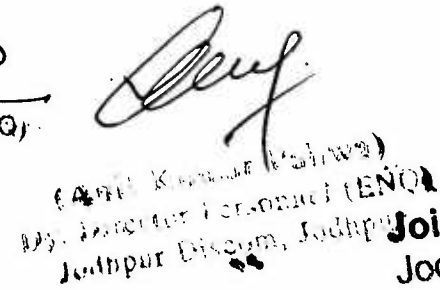 Q)
(Anil Kumar
Dy. Director Personnel (ENQ)
Jodhpur Discom, Jodhpu
Joi
Jod